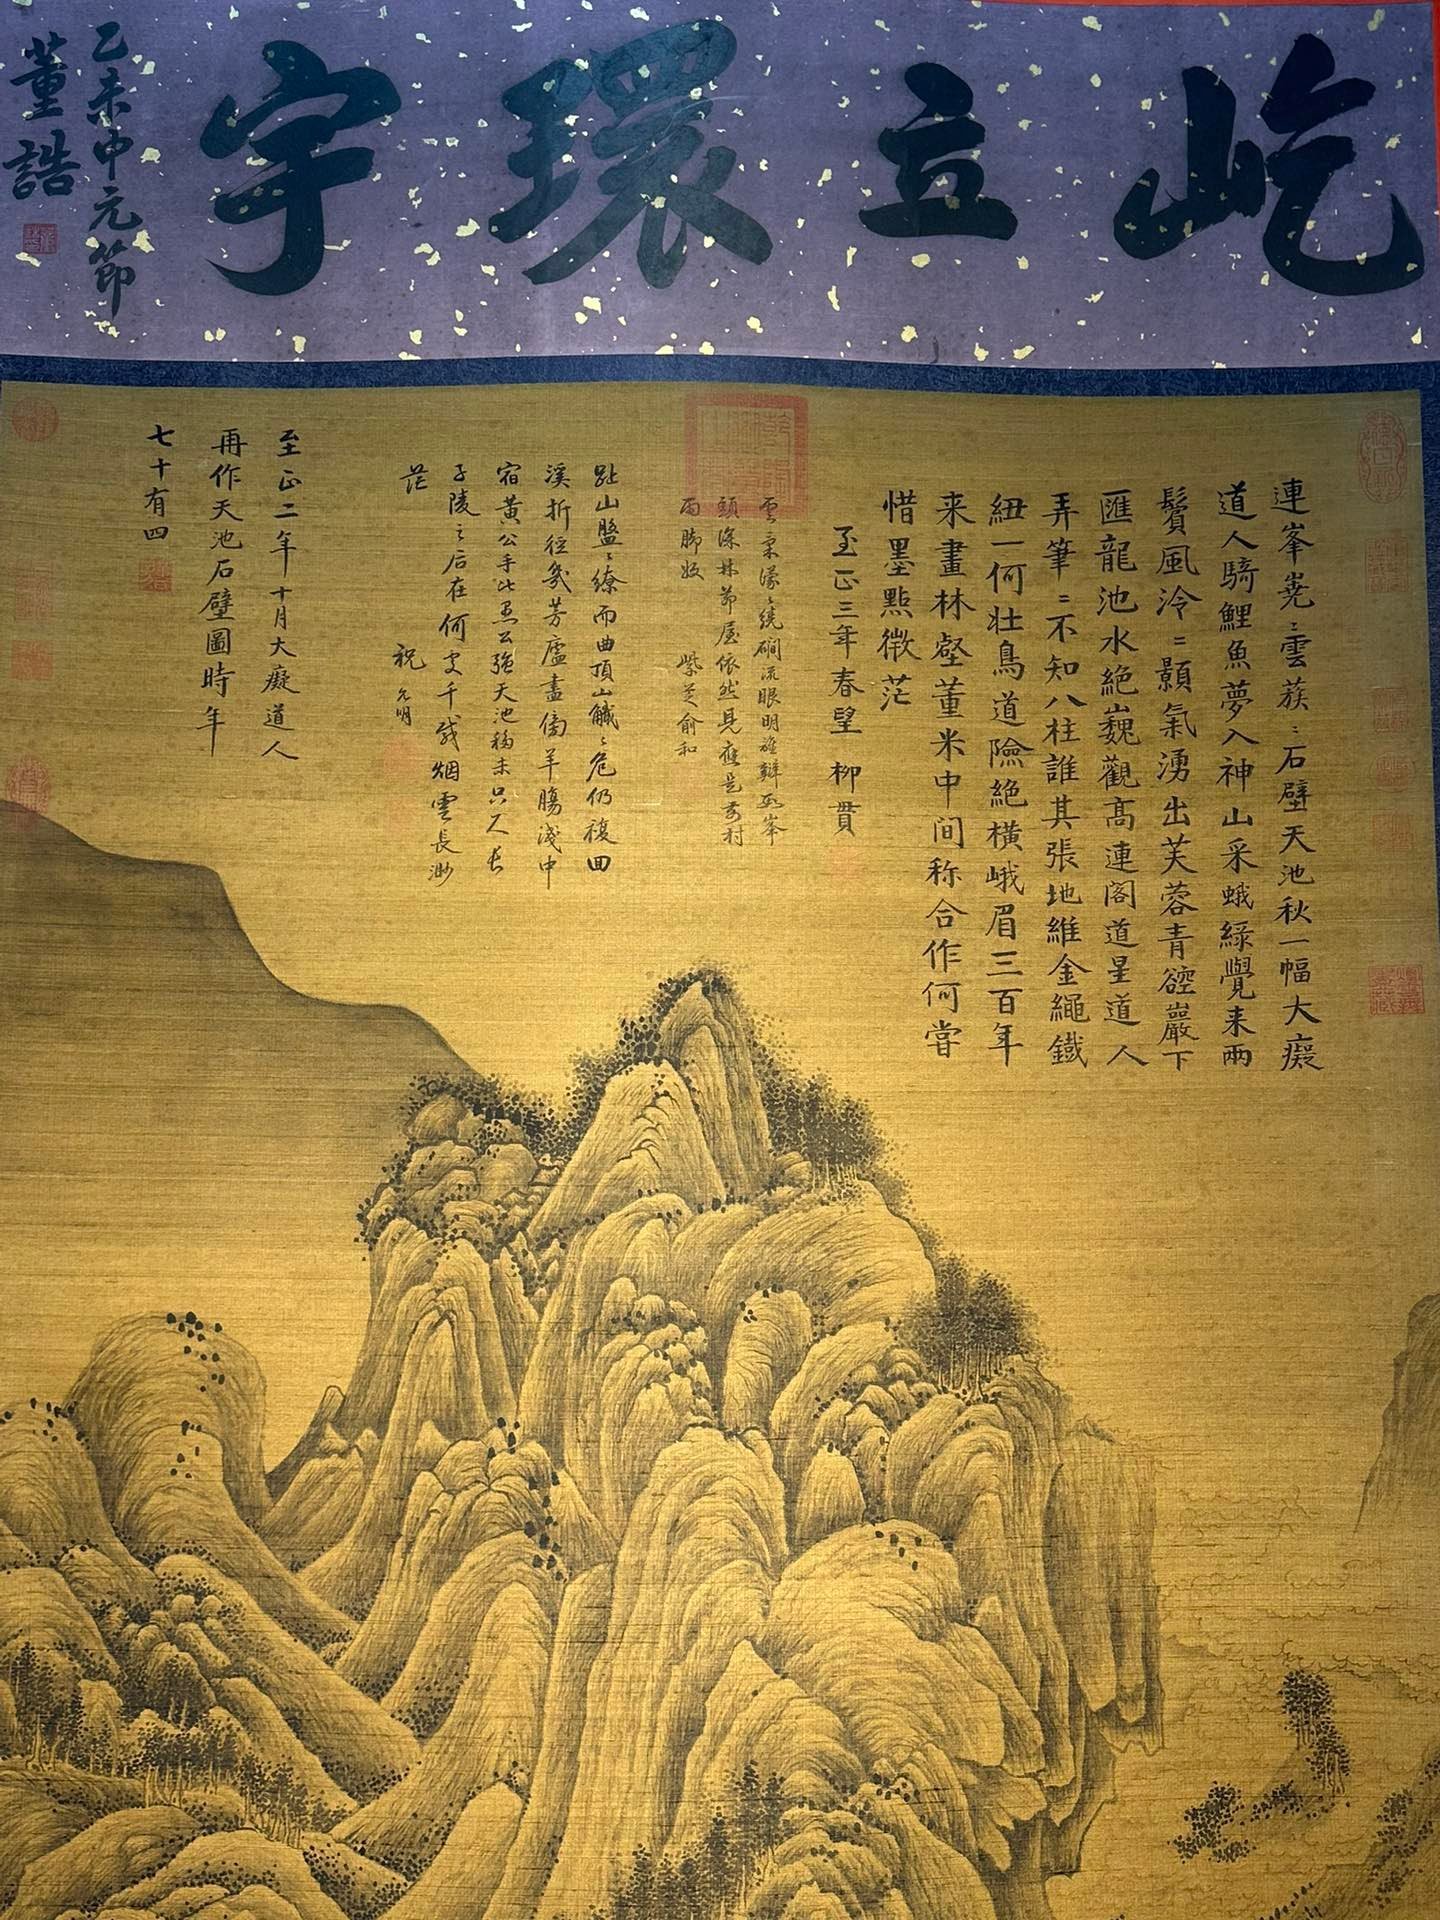 屹立環宇
乙未中元節
董誥
連峯嶤〻雲蔟〻石壁天池秋一幅大癡
道人騎鯉魚夢入神山采蛾綠覺来兩
鬢風泠〻顥氣湧出芙蓉青硿巖下
匯龍池水絶巍觀髙連閣道星道人
弄筆〻不知八柱誰其張地維金繩鐵
紐一何壯鳥道險絶橫峨眉三百年
来畫林壑董米中间称合作何甞
惜墨點微茫
至正三年春望 柳貫
雲氣濛〻繞磵流眼明誰辨
頭深林茅屋依然見應是前村
雨脚收 紫芝俞和
山盤〻繚而曲頂山巇〻危仍複田
溪折徑幾芳廬盡傍羊膓淺中
宿黄公手此
子陵之后在何支千载烟雲長渺
茫 祝允明
至正二年十月大癡道人
再作天池石壁圖時年
七十有四